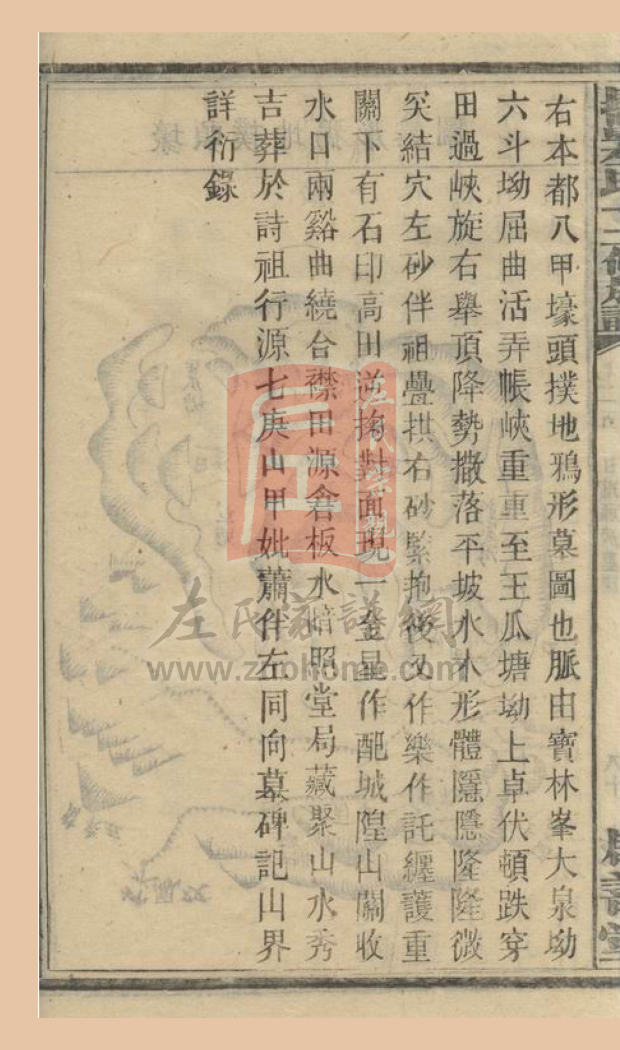 右本都八甲壕頭撲地鴉形墓圖也脈由寶林峯大泉坳
六斗坳屈曲活弄帳峽重重至王瓜塘坳上卓伏頓跌穿
田過峽旋右舉頂降勢撒落平坡水木形體隱隱隆隆微
突結穴左砂伴祖疊拱右砂緊抱後又作樂作託纏護重
關下有石印高田逆掬對面現一金星作配城隍山關收
水口兩谿曲繞合襟田源倉板水暗照堂局藏聚山水秀
吉葬於詩祖行源七庚山甲妣蕭伴左同向墓碑記山界
詳衍錄
左氏家譜網
www.zuohome.com